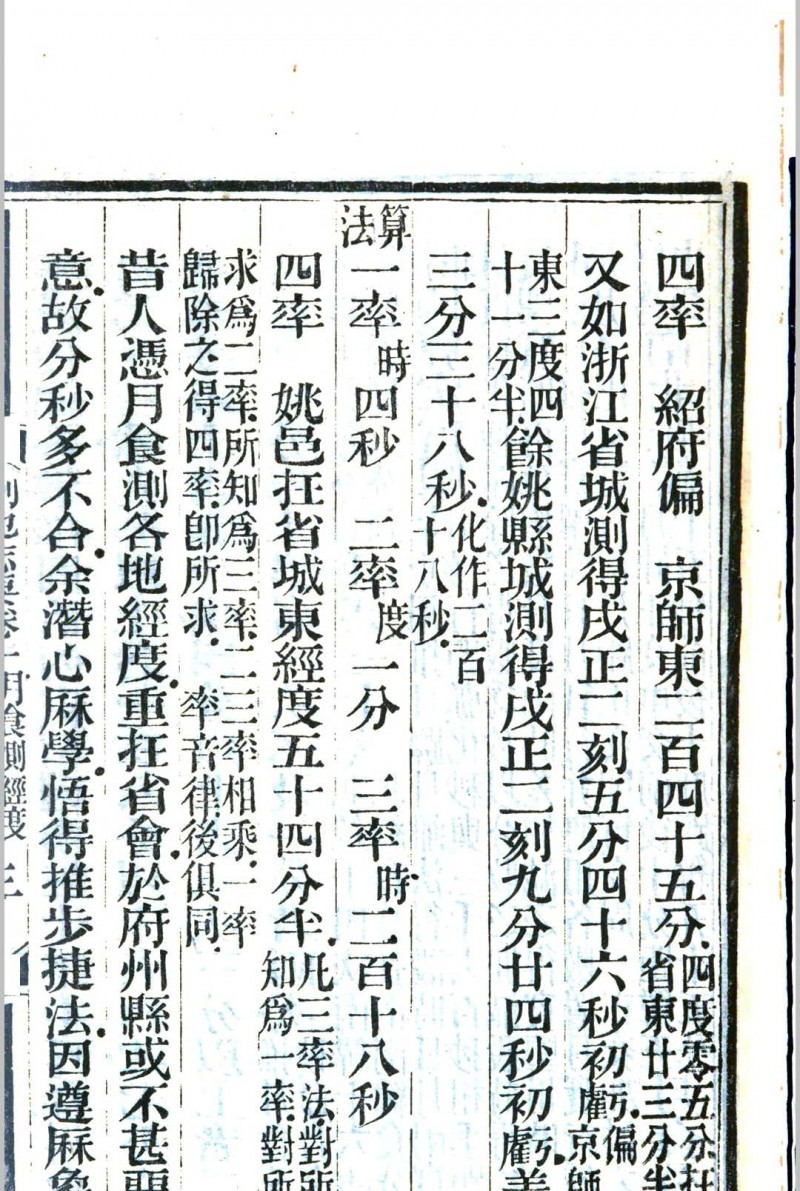 四率　紹府偏　京師東二百四十五分四度零五分在省東廿三分半
又如浙江省城測得戌正二刻五分四十六秒初虧偏京師
東三度四十一分半餘姚縣城測得戌正二刻九分廿四秒初虧差
三分三十八秒化作二百十八秒
算法一率時四秒　二率度一分　三率時二百十八秒
四率　姚邑在省城東經度五十四分半凡三率法對所知爲一率對所
求爲二率所知爲三率二三率相乘一率歸除之得四率卽所求　率音律後俱同
昔人憑月食測各地經度重在省會於府州縣或不甚
意故分秒多不合余潛心厤學悟得推步捷法因遵厤象
月食測經度　三